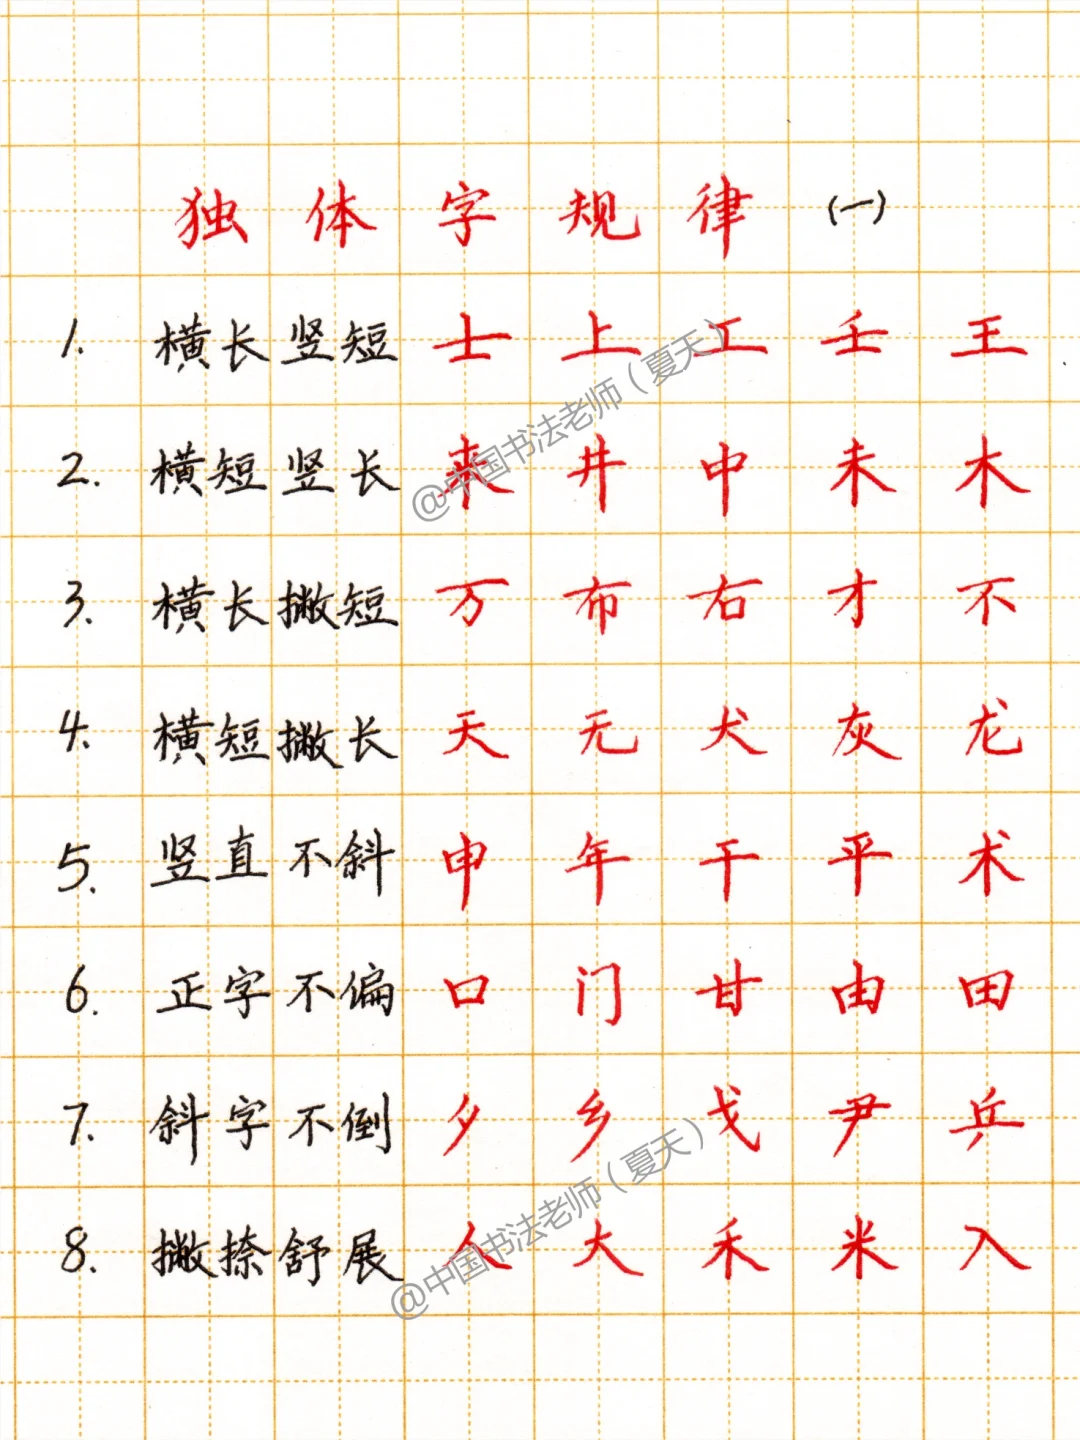 独体字规律 (一)
1. 横长竖短 士 上 工 壬 王
2. 横短竖长 来 井 中 未 木
3. 横长撇短 万 布 右 才 不
4. 横短撇长 天 无 犬 灰 龙
5. 竖直不斜 申 年 干 平 术
6. 正字不偏 口 门 甘 由 田
7. 斜字不倒 夕 乡 戈 尹 乒
8. 撇捺舒展 人 大 禾 米 入
@中国书法老师（夏天）
@中国书法老师（夏天）